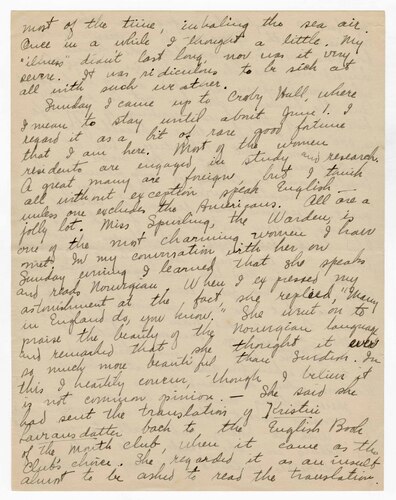 most of the time, inhaling the sea air.
Once in a while I thought a little. My
"illness" didn't last long, nor was it very
severe. It was ridiculous to be sick at
all with such weather.
Sunday I came up to Crosby Hall, where
I mean to stay until about June 1. I
regard it as a bit of rare good fortune
that I am here. Most of the women
residents are engaged in study and research.
A great many are foreign but I think
all without exception speak English —
unless one excludes the Americans. All are a
jolly lot. Miss Spurling, the Warden, is
one of the most charming women I have
met. In my conversation with her on
Sunday evening I learned that she speaks
and reads Norwegian. When I expressed my
astonishment at the fact, she replied, "Many
in England do, you know." She went on to
praise the beauty of the Norwegian language
and remarked that she thought it ever
so much more beautiful than Swedish. In
this I heartily concur, though I believe it
is not common opinion. — She said she
had sent the translation of Kristin
Lavransdatter back to the English Book
of the Month Club, when it came as the
Club's choice. She regarded it as an insult
almost to be asked to read the translation.